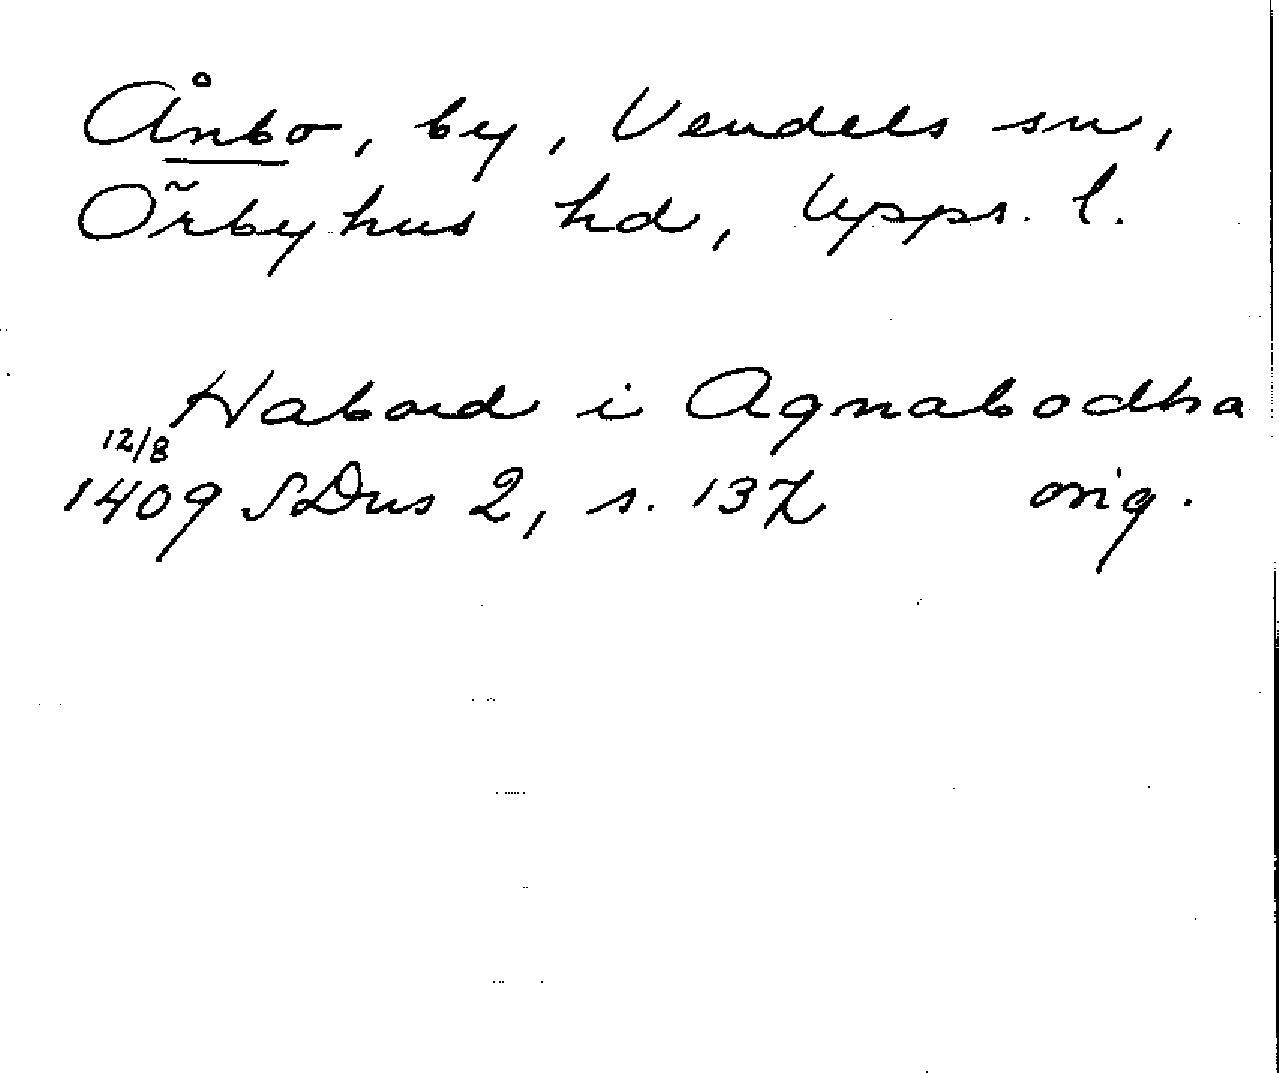 Ånbo, by, Vendels sn,
Örbyhus hd, Upps. l.
Habord i Agnabodha
12/8
1409 SDns 2, s. 137 orig.